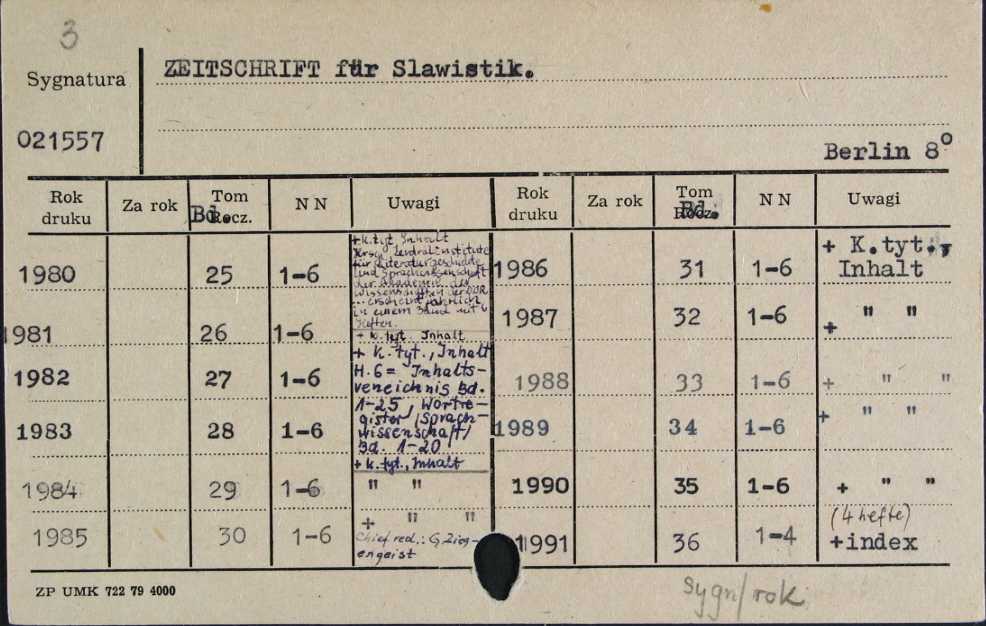 3
Sygnatura
ZEITSCHRIFT für Slawistik.
021557
Berlin 8°
Rok druku Za rok Tom Rocz. Bd. N N Uwagi Rok druku Za rok Tom Rocz. Bd. N N Uwagi
1980 25 1-6
+ K.tyt. Inhalt
Zentralinstitute
für Literaturgeschichte
und Sprachwissenschaft
der Akademie der
Wissenschaften der DDR
... erscheint jährlich
in einem Band mit 6
Heften.
1981 26 1-6 + K. tyt. Inhalt
1982 27 1-6
+ K. tyt., Inhalt
H. 6 = Inhalts-
verzeichnis Bd.
1-25, Wortre-
gister /Sprach-
wissenschaft/
Bd. 1-20
1983 28 1-6 + K. tyt., Inhalt
1984 29 1-6 " "
1985 30 1-6 + " "
Chief red.: G. Zieg-
engeist
1986 31 1-6 + K.tyt.,
Inhalt
1987 32 1-6 + " "
1988 33 1-6 + " "
1989 34 1-6 + " "
1990 35 1-6 + " "
1991 36 1-4 (4 hefte)
+index
ZP UMK 722 79 4000
sygn/rok